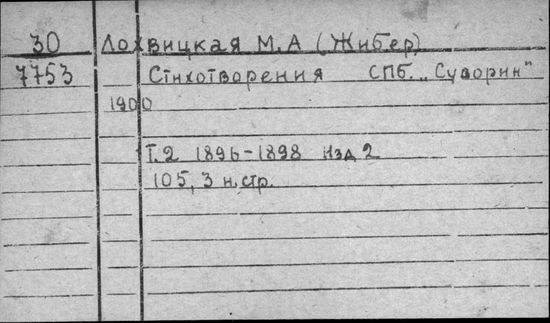 30 Лохвицкая М.А (Жибер)
7753 Стихотворения СПБ. „Суворин"
1900
Т.2 1896-1898 Изд 2
105, 3 н.стр.